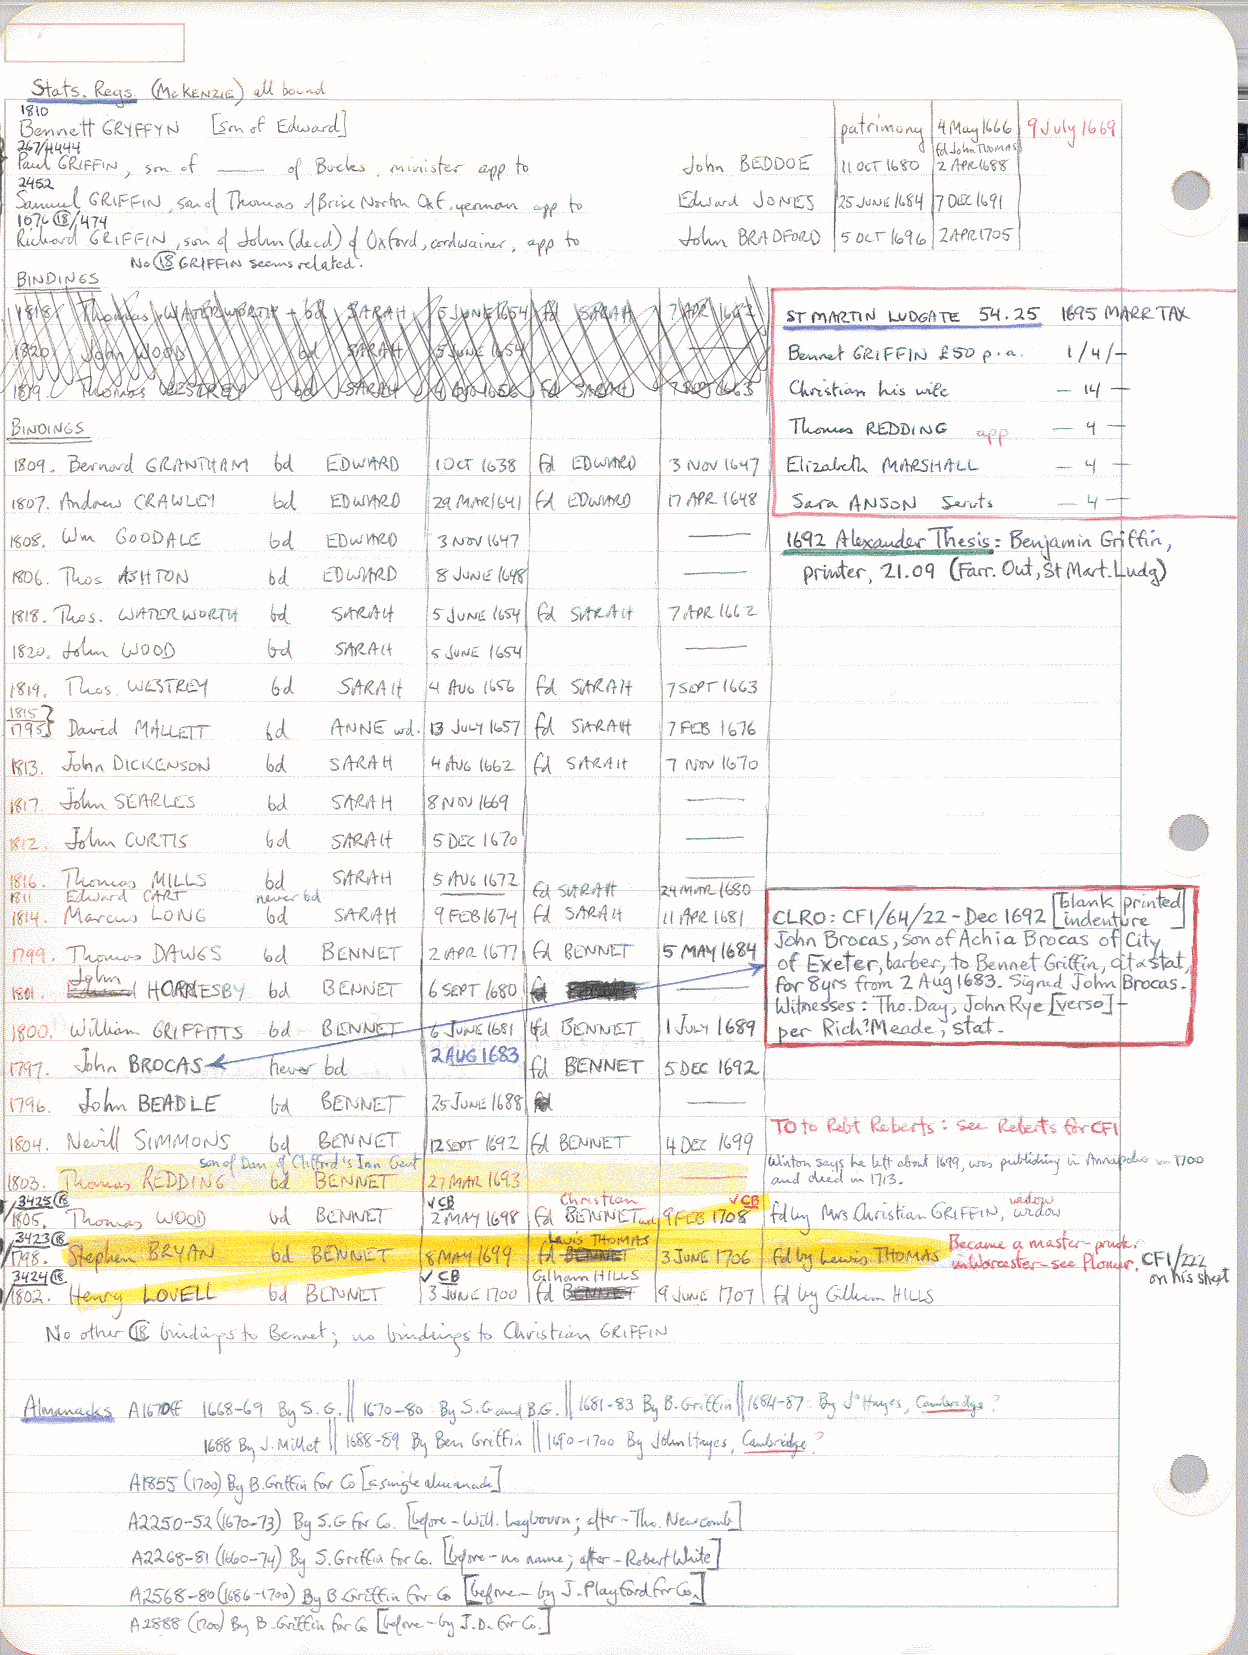 Stats. Regs. (McKENZIE) all bound
1810
Bennett GRYFFYN [son of Edward] patrimony 4 May 1666 9 July 1669
267/4444
Paul GRIFFIN, son of —— of Bucks. minister app to John BEDDOE 11 OCT 1680 fd John THOMAS 2 APR 1688
2452
Samuel GRIFFIN, son of Thomas of Brise Norton Oxf. yeoman app to Edward JONES 25 JUNE 1684 7 DEC 1691
1676 (18)/474
Richard GRIFFIN, son of John (decd) of Oxford, cordwainer, app to John BRADFORD 5 OCT 1696 2 APR 1705
No (18) GRIFFIN seems related.
BINDINGS
1818. Thomas WATERWORTH bd SARAH 5 JUNE 1654 fd SARAH 7 APR 1662
1820. John WOOD bd SARAH 5 JUNE 1654 ——
1819. Thomas WESTREY bd SARAH 4 AUG 1656 fd SARAH 7 SEPT 1663
ST MARTIN LUDGATE 54.25 1695 MARR TAX
Bennet GRIFFIN £50 p.a. 1/4/-
Christian his wife — 14 —
Thomas REDDING app — 4 —
Elizabeth MARSHALL — 4 —
Sara ANSON Servts — 4 —
1692 Alexander Thesis: Benjamin Griffin,
printer, 21.09 (Farr. Out, St Mart. Ludg)
BINDINGS
1809. Bernard GRANTHAM bd EDWARD 1 OCT 1638 fd EDWARD 3 NOV 1647
1807. Andrew CRAWLEY bd EDWARD 29 MAR 1641 fd EDWARD 17 APR 1648
1808. Wm GOODALE bd EDWARD 3 NOV 1647 ——
1806. Thos ASHTON bd EDWARD 8 JUNE 1648 ——
1818. Thos. WATERWORTH bd SARAH 5 JUNE 1654 fd SARAH 7 APR 1662
1820. John WOOD bd SARAH 5 JUNE 1654 ——
1819. Thos. WESTREY bd SARAH 4 AUG 1656 fd SARAH 7 SEPT 1663
1815
1795} David MALLETT bd ANNE wd. 13 JULY 1657 fd SARAH 7 FEB 1676
1813. John DICKENSON bd SARAH 4 AUG 1662 fd SARAH 7 NOV 1670
1817. John SEARLES bd SARAH 8 NOV 1669 ——
1812. John CURTIS bd SARAH 5 DEC 1670 ——
1816. Thomas MILLS bd SARAH 5 AUG 1672 ——
1811 Edward CART never bd —— fd SARAH 24 MAR 1680
1814. Marcus LONG bd SARAH 9 FEB 1674 fd SARAH 11 APR 1681
1799. Thomas DAWGS bd BENNET 2 APR 1677 fd BENNET 5 MAY 1684
1801. John HORNESBY bd BENNET 6 SEPT 1680 fd ——
1800. William GRIFFITTS bd BENNET 6 JUNE 1681 fd BENNET 1 JULY 1689
1797. John BROCAS never bd 2 AUG 1683 fd BENNET 5 DEC 1692
1796. John BEADLE bd BENNET 25 JUNE 1688 fd ——
1804. Nevill SIMMONS bd BENNET 12 SEPT 1692 fd BENNET 4 DEC 1699 TO to Robt Roberts: see Roberts for CF1
CLRO: CF1/64/22 - Dec 1692 [blank printed indenture]
John Brocas, son of Achia Brocas of City
of Exeter, barber, to Bennet Griffin, cit & stat,
for 8 yrs from 2 Aug 1683. Signd John Brocas.
Witnesses: Tho. Day, John Rye [verso] -
per Richd Meade, stat.
son of Dan. of Clifford's Inn Gent
1803. Thomas REDDING bd BENNET 27 MAR 1693 —— Winton says he left about 1699, was publishing in Annapolis in 1700
and died in 1713.
3425 (18)
/1805. Thomas WOOD bd BENNET ✓CB 2 MAY 1698 fd Christian BENNET wd. ✓CB 9 FEB 1708 fd by Mrs Christian GRIFFIN, widow widow
3423 (18)
/1798. Stephen BRYAN bd BENNET 8 MAY 1699 fd Lewis THOMAS BENNET 3 JUNE 1706 fd by Lewis THOMAS Became a master-printer
in Worcester - see Plomer. CF1/222
on his shept
3424 (18)
/1802. Henry LOVELL bd BENNET ✓CB 3 JUNE 1700 fd Gilham HILLS BENNET 9 JUNE 1707 fd by Gilham HILLS
No other (18) bindings to Bennet; no bindings to Christian GRIFFIN
Almanacks A1670ff 1668-69 By S.G. || 1670-80 By S.G and B.G. || 1681-83 By B. Griffin || 1684-87 By Jn Hayes, Cambridge?
1688 By J. Millet || 1688-89 By Ben Griffin || 1690-1700 By John Hayes, Cambridge?
A1855 (1700) By B. Griffin for Co [a single almanack]
A2250-52 (1670-73) By S.G for Co. [before - Will. Leybourn; after - Tho. Newcomb]
A2268-81 (1660-74) By S. Griffin for Co. [before - no name; after - Robert White]
A2568-80 (1686-1700) By B. Griffin for Co [before - by J. Playford for Co.]
A2888 (1700) By B. Griffin for Co [before - by J.D. for Co.]